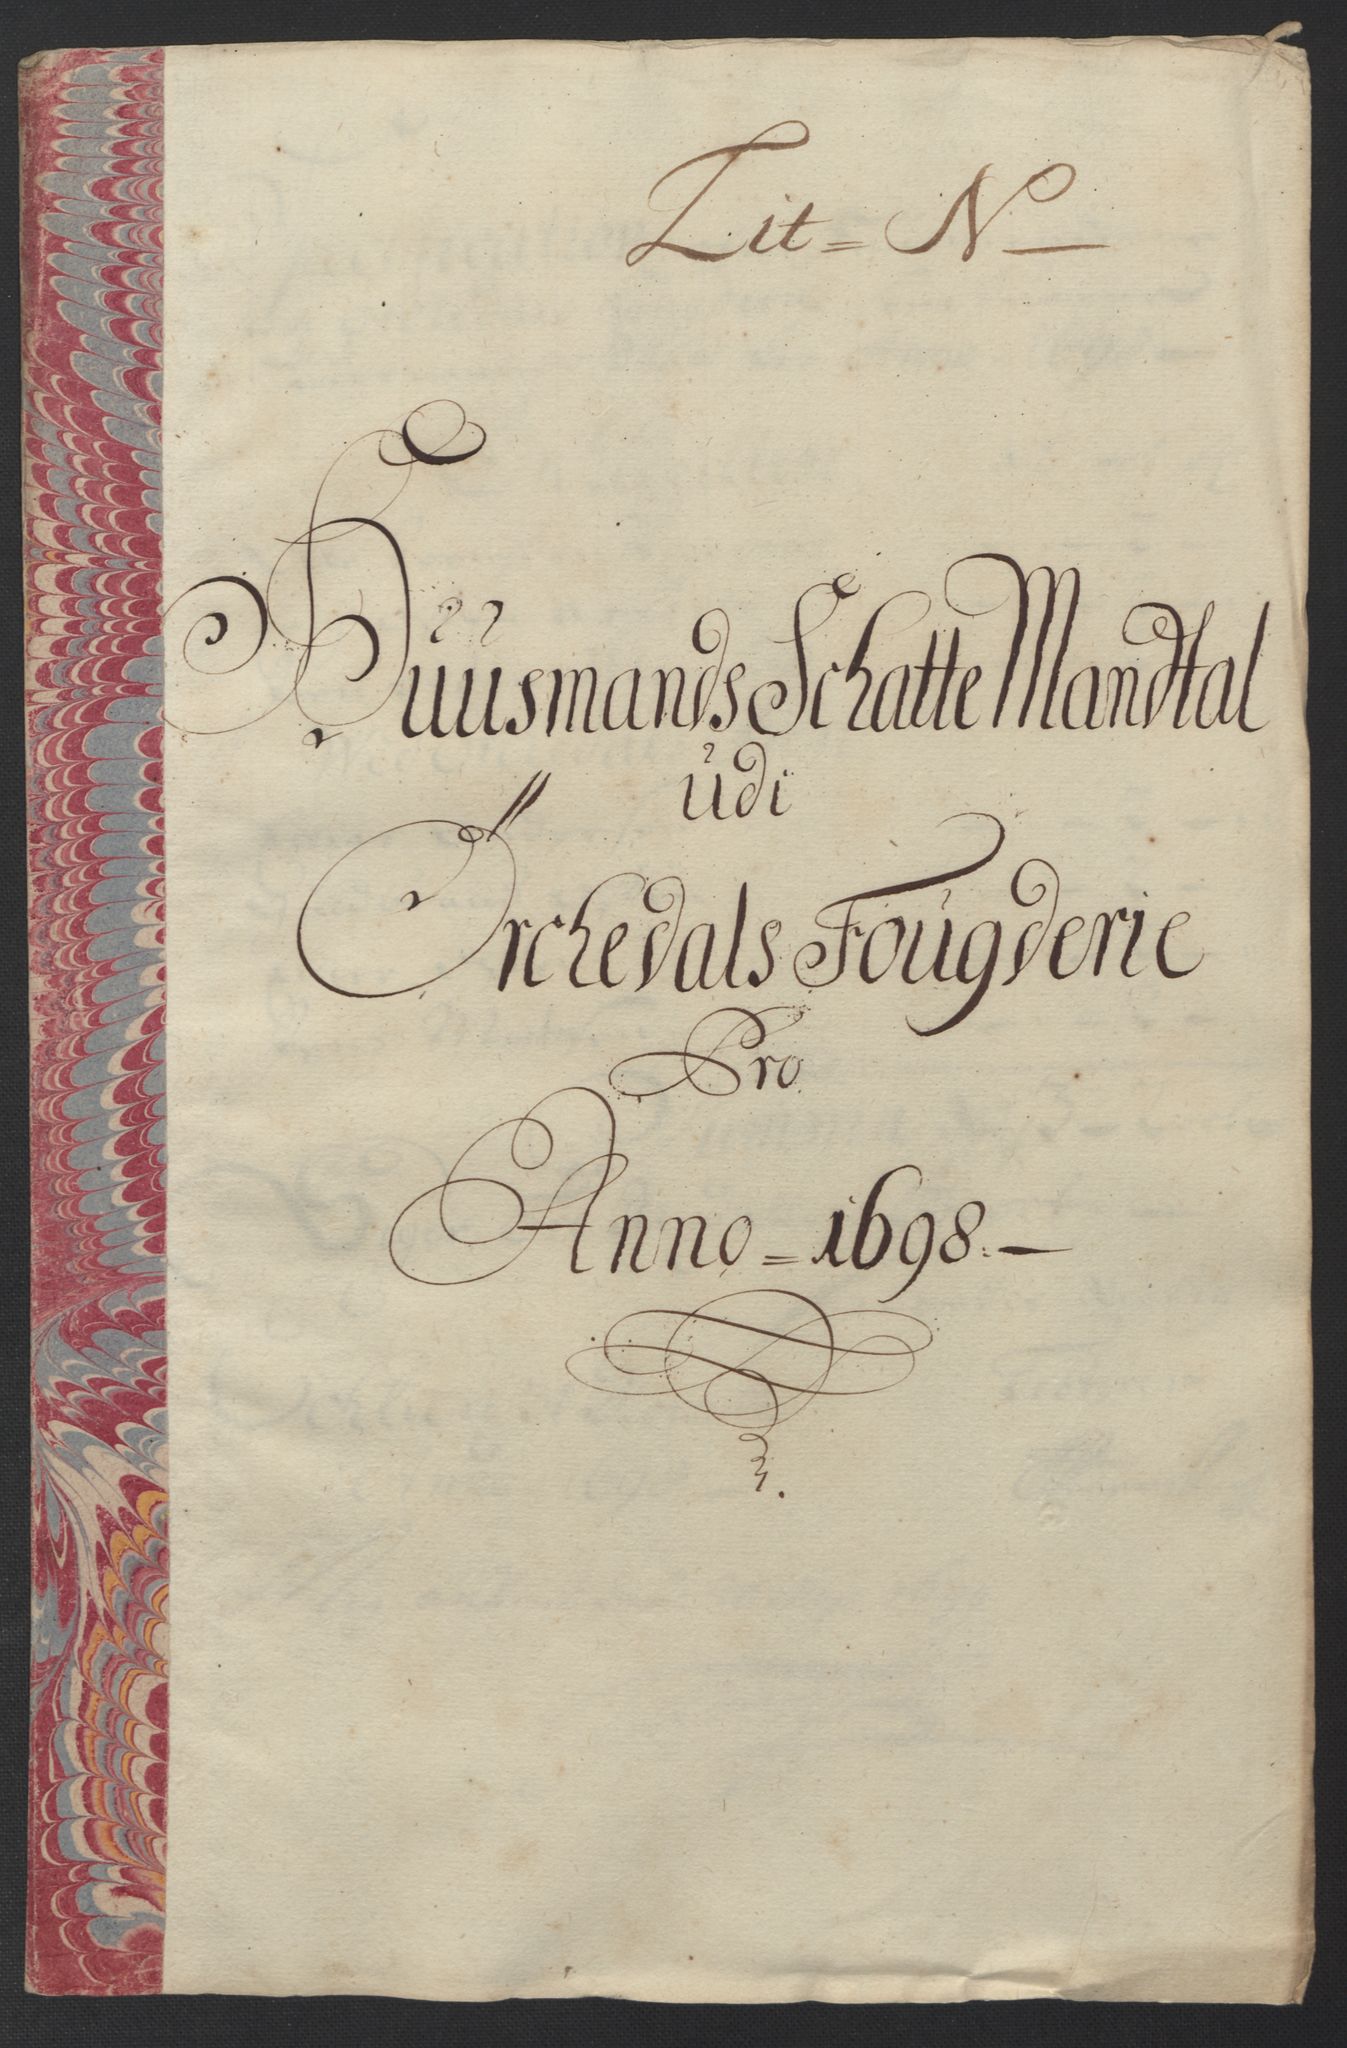 Lit = N
Huusmands Schatte Mandtal
udi
Örchedals Fougderie
Pro
Anno = 1698.